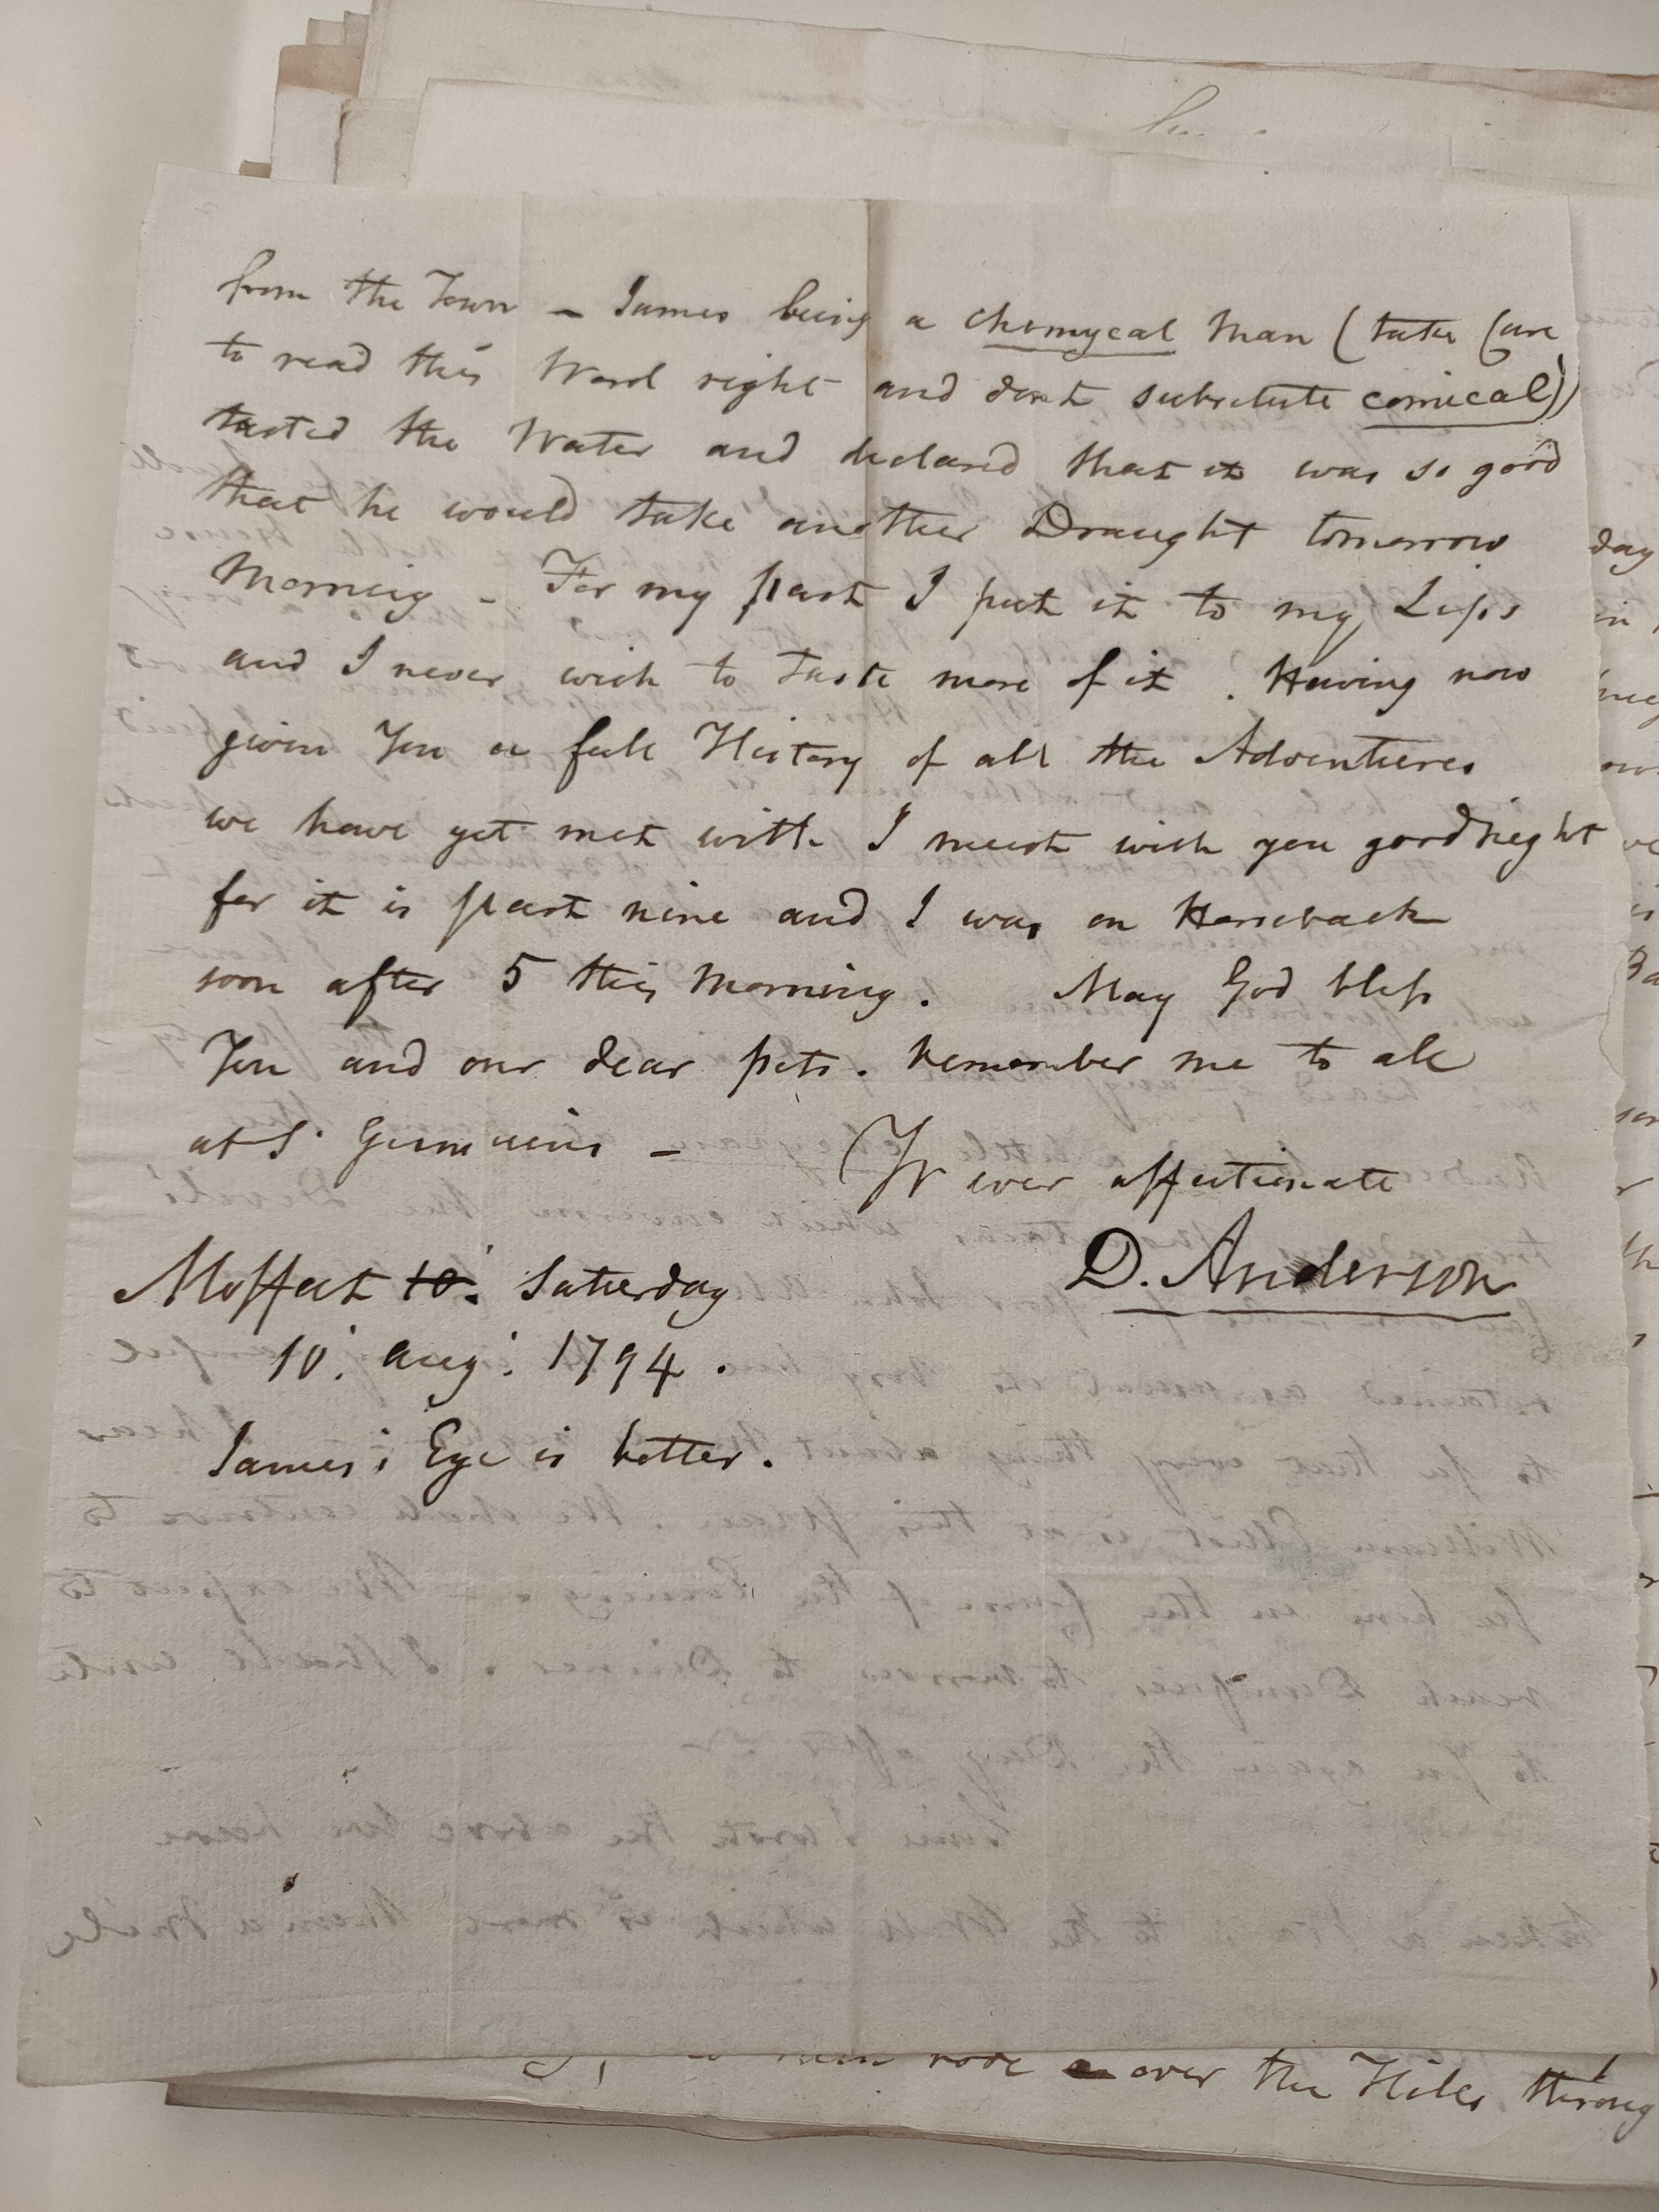 from the Town – James being a chemycal Man (take Care
to read this Word right and dont substitute comical))
tasted the Water and declared that it was so good
that he would take another Draught tomorrow
Morning – For my part I put it to my Lips
and I never wish to taste more of it. Having now
given You a full History of all the Adventures
we have yet met with I must wish you good night
for it is past nine and I was on Horseback
soon after 5 this Morning. May God bless
You and our dear pets. Remember me to all
at St Germains –
Yr ever affectionate
D. Anderson
Moffat 10. Saturday
10. Aug. 1794.
James's Eye is better.
day
over the Hills throug